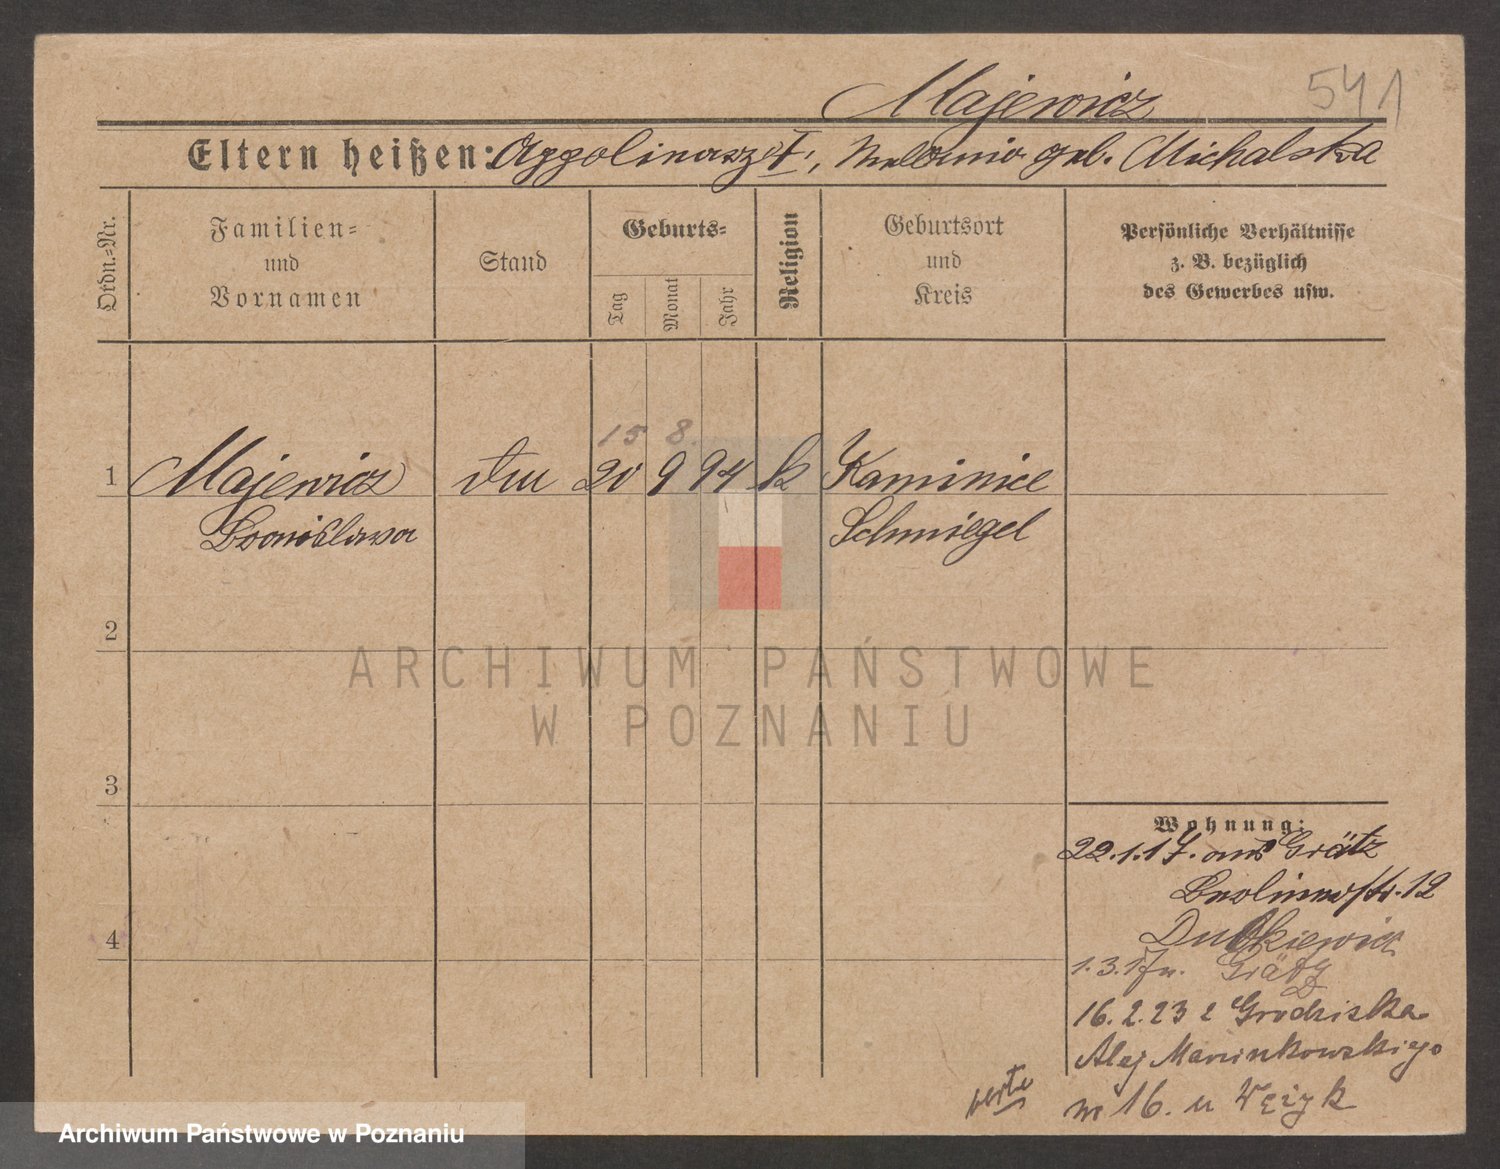 Majewicz 541
Eltern heißen: Appolinary †, geb. Michalska
Ordn.-Nr.
Familien-
und
Vornamen
Stand
Geburts-
Tag
Monat
Jahr
Religion
Geburtsort
und
Kreis
Persönliche Verhältnisse
z. B. bezüglich
des Gewerbes usw.
15 8.
1 Majewicz 20 9 94 k Kaminiec
Bronislawa Schmiegel
2
ARCHIWUM PAŃSTWOWE
W POZNANIU
3
Wohnung:
22.1.17. aus Grätz
Berlinerstr. 12
4 Dutkiewicz
1.3.17 n. Grätz
16.2.23 z Grodziska
Alej Marcinkowskiego
nr 16. u Wężyk
verte
Archiwum Państwowe w Poznaniu